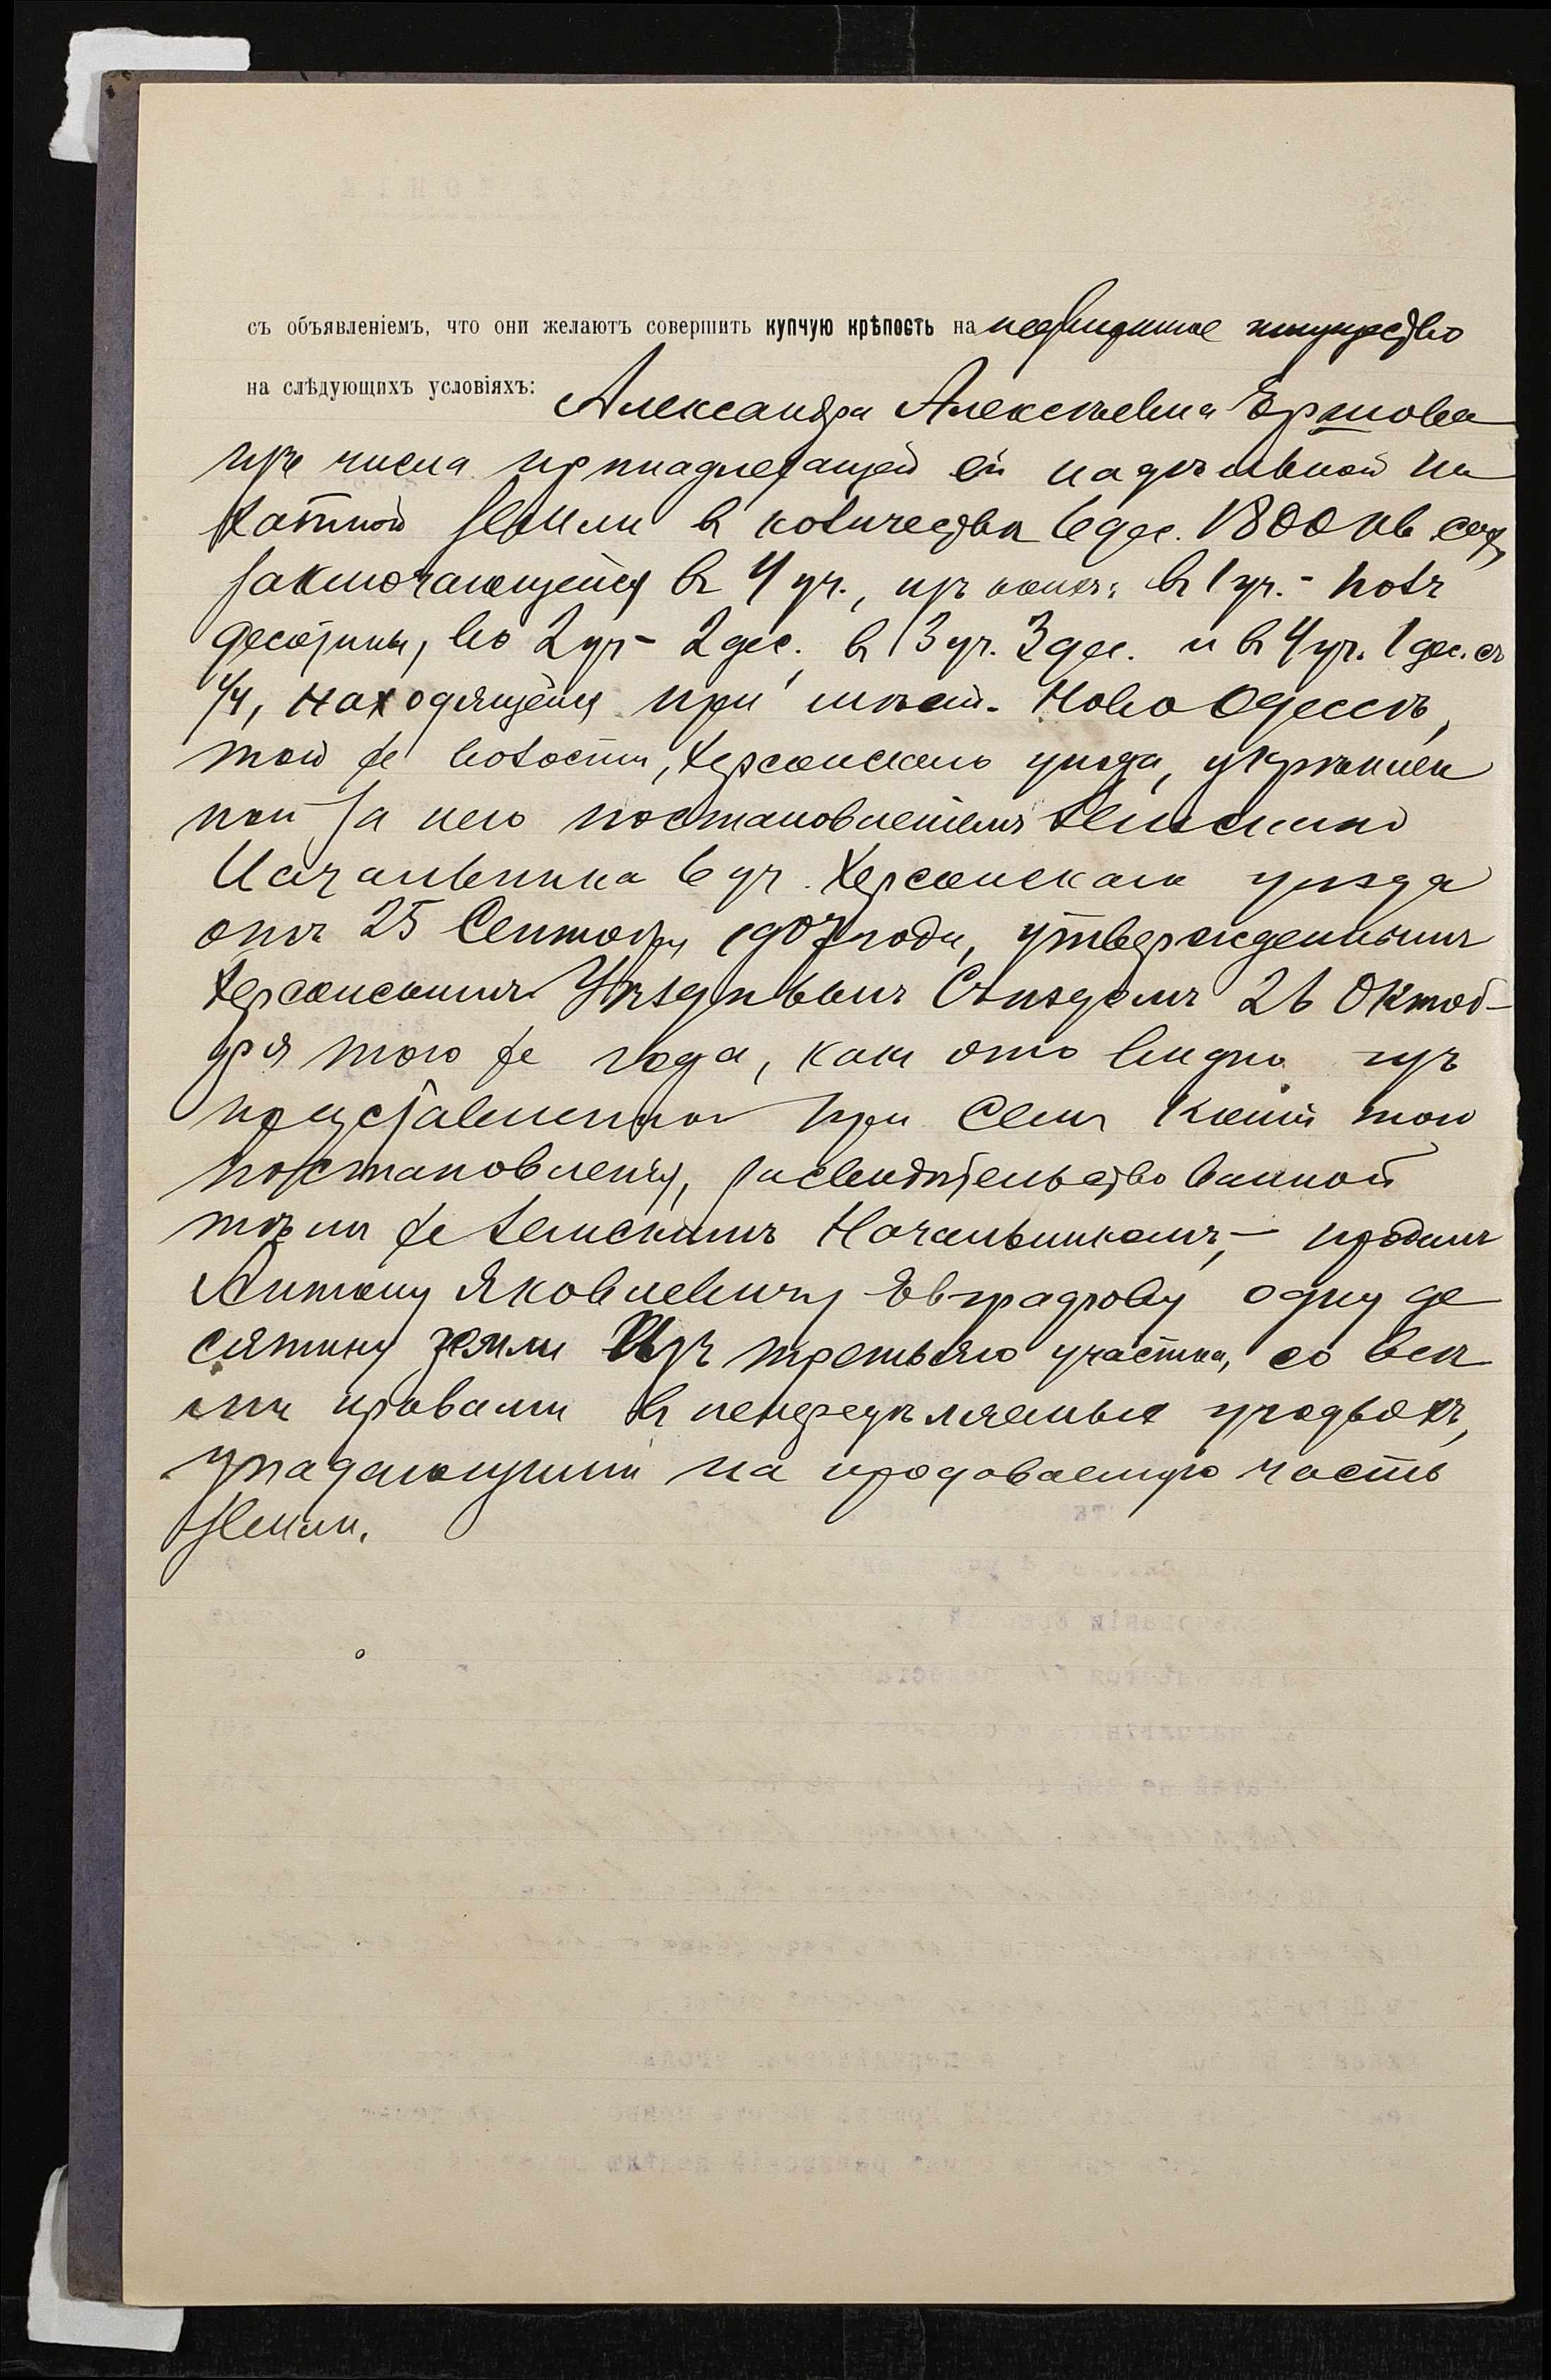 съ объявленіемъ, что они желаютъ совершить купчую крѣпость на недвижимое имущество
на слѣдующихъ условіяхъ: Александра Алексѣевна Ершова
изъ числа принадлежащей ей надѣльной па
хатной земли въ количествѣ 6 дес. 1800 кв. саж,
заключающейся въ 4 уч., изъ коихъ: въ 1 уч. - полъ
десятины, во 2 уч - 2 дес. въ 3 уч. 3 дес. и въ 4 уч. 1 дес. съ
1/4, находящейся при мѣст. Ново Одессѣ,
той же волости, Херсонскаго уѣзда, укрѣплен
ной за нею постановленіемъ Земскаго
Начальника 6 уч. Херсонскаго уѣзда
отъ 25 Сентября 1907 года, утвержденнымъ
Херсонскимъ Уѣзднымъ Съѣздомъ 26 Октяб-
ря того же года, какъ это видно изъ
представленной при семъ копіи того
постановленія, засвидѣтельствованной
тѣмъ же Земскимъ Начальникомъ, - продала
Антону Яковлевичу Евграфову одну де
сятину земли изъ третьяго участка, со всѣ
ми правами въ непередѣляемыя угодьяхъ,
упадающими на продаваемую часть
земли.